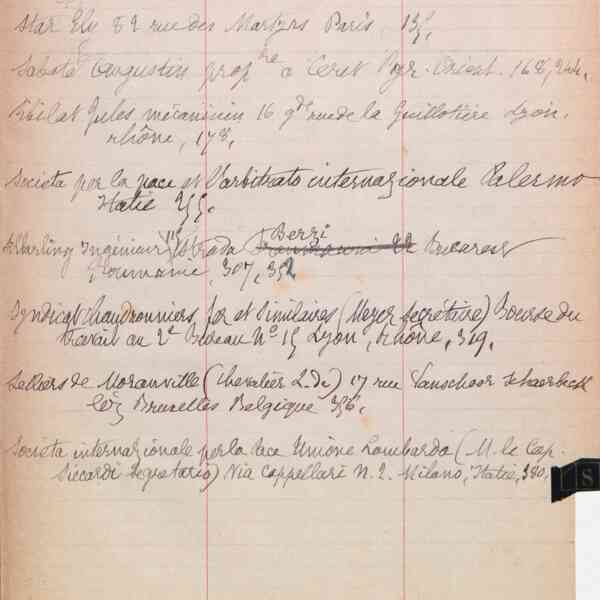 Star Ely 82 rue des Martyrs Paris, 135,
Sabaté Augustin prop^re à Ceret Pyr. Orient. 168,
Jules mécanicien 16 g^de rue de la Guillotière Lyon.
rhône, 178,
Societa per la pace et l'arbitrato internazionale Palermo
Italie 255,
Ingénieur Strada Berzi Bucarest
Roumanie, 307, 352
Syndicat chaudronniers, fer et Similaires (Meyer Secrétaire) Bourse du
travail au 2e Bureau No 15 Lyon, rhône, 319,
Selliers de Moranville (Chevalier L. de) 17 rue Vanschoor Schaerbeek
lez Bruxelles Belgique 356,
Societa internazionale per la Pace Unione Lombarda (M. le Cap.
Siccardi Segretario) Via Cappellari N. 2. Milano, Italie, 380,
S